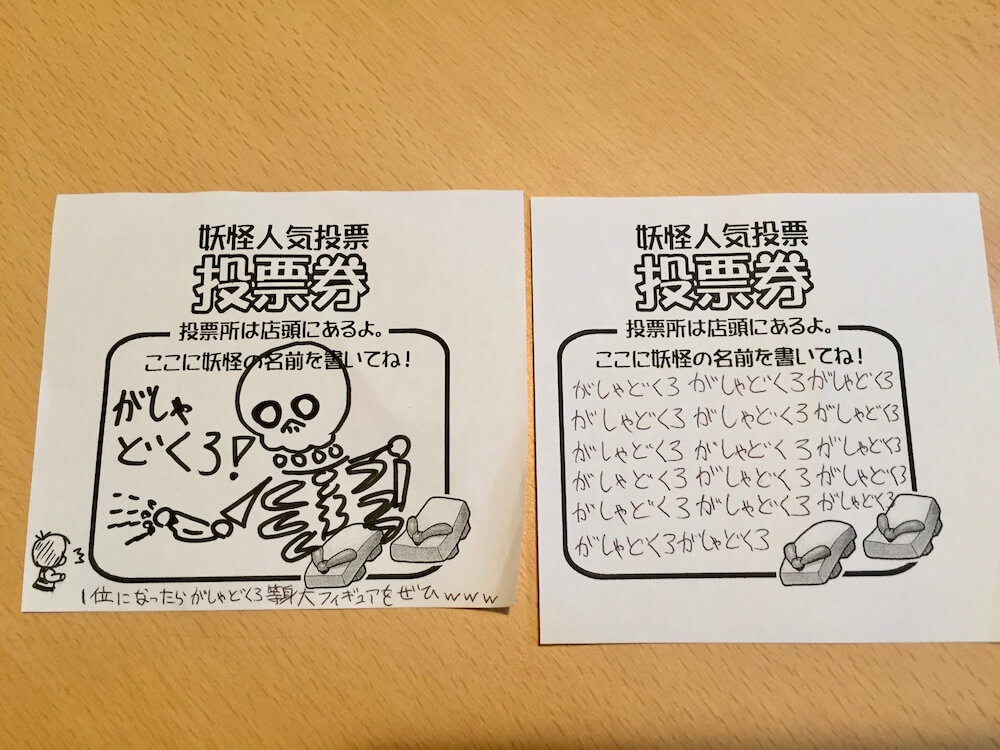 妖怪人気投票
投票券
投票所は店頭にあるよ。
ここに妖怪の名前を書いてね!
がしゃ
どくろ!
1位になったらがしゃどくろ等身大フィギュアをぜひwww
妖怪人気投票
投票券
投票所は店頭にあるよ。
ここに妖怪の名前を書いてね!
がしゃどくろ がしゃどくろ がしゃどくろ
がしゃどくろ がしゃどくろ がしゃどくろ
がしゃどくろ がしゃどくろ がしゃどくろ
がしゃどくろ がしゃどくろ がしゃどくろ
がしゃどくろ がしゃどくろ がしゃどくろ
がしゃどくろ がしゃどくろ